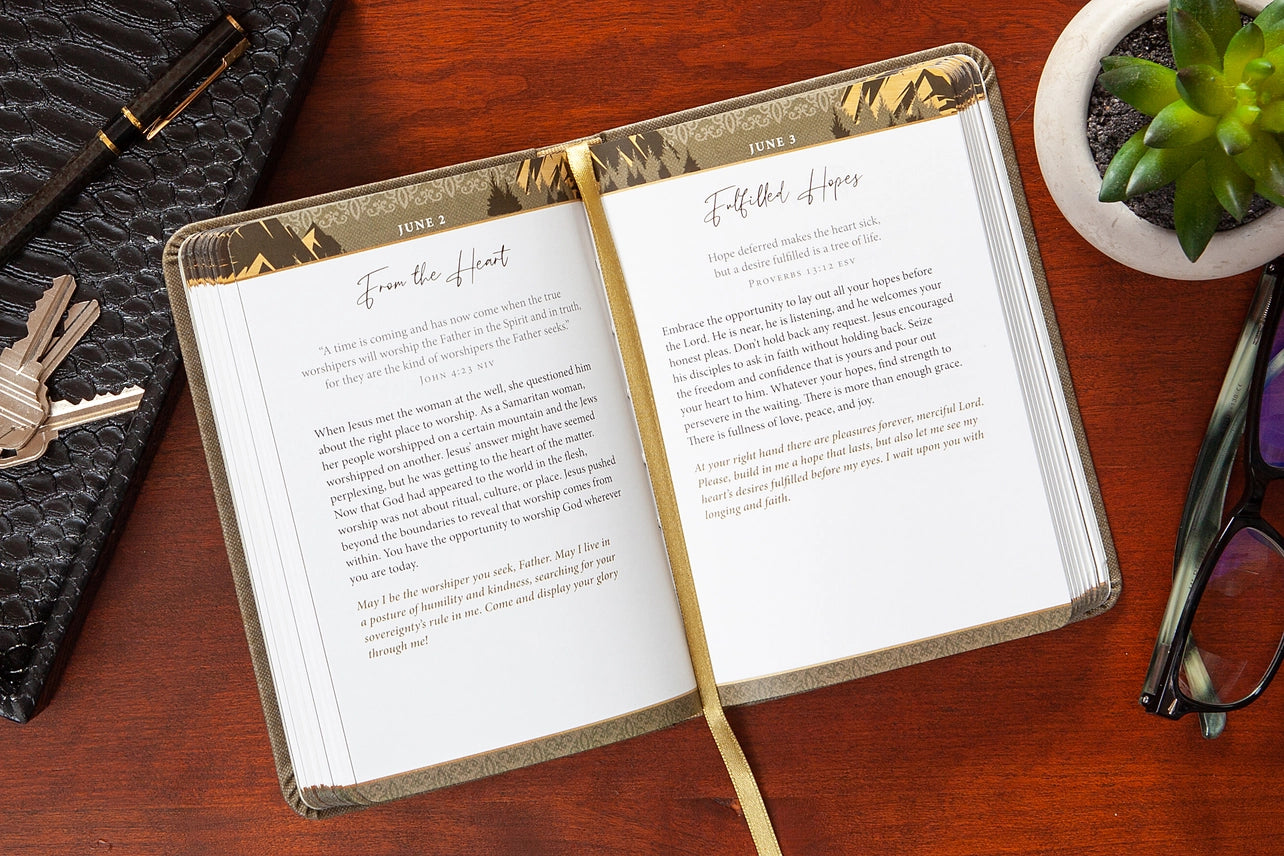 JUNE 2
From the Heart
“A time is coming and has now come when the true
worshipers will worship the Father in the Spirit and in truth,
for they are the kind of worshipers the Father seeks.”
John 4:23 NIV
When Jesus met the woman at the well, she questioned him
about the right place to worship. As a Samaritan woman,
her people worshipped on a certain mountain and the Jews
worshipped on another. Jesus’ answer might have seemed
perplexing, but he was getting to the heart of the matter.
Now that God had appeared to the world in the flesh,
worship was not about ritual, culture, or place. Jesus pushed
beyond the boundaries to reveal that worship comes from
within. You have the opportunity to worship God wherever
you are today.
May I be the worshiper you seek, Father. May I live in
a posture of humility and kindness, searching for your
sovereignty’s rule in me. Come and display your glory
through me!
JUNE 3
Fulfilled Hopes
Hope deferred makes the heart sick,
but a desire fulfilled is a tree of life.
Proverbs 13:12 ESV
Embrace the opportunity to lay out all your hopes before
the Lord. He is near, he is listening, and he welcomes your
honest pleas. Don’t hold back any request. Jesus encouraged
his disciples to ask in faith without holding back. Seize
the freedom and confidence that is yours and pour out
your heart to him. Whatever your hopes, find strength to
persevere in the waiting. There is more than enough grace.
There is fullness of love, peace, and joy.
At your right hand there are pleasures forever, merciful Lord.
Please, build in me a hope that lasts, but also let me see my
heart’s desires fulfilled before my eyes. I wait upon you with
longing and faith.